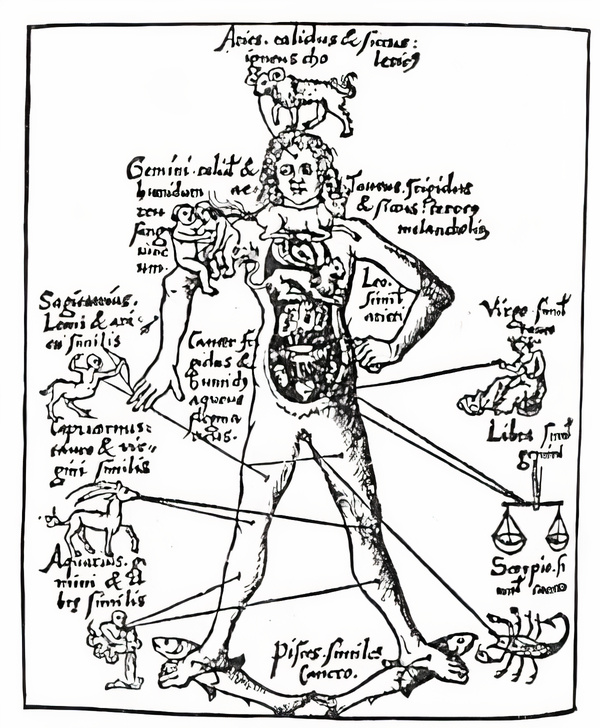 Aries. calidus & siccus:
igneus cho lericus
Gemini. calid &
humidum ae-
reu
sang
uine
um.
Taurus. frigidus
& siccus: terreus
melancholicus
Leo.
simil
arieti
Sagitarius.
Leoni & arie
tu similis
Cancer fri
gidus &
humidus
aqueus
flegma
ticus.
Virgo. simil
Tauro
Capricornus:
tauro & vir=
gini similis
Libra simil
gemini
Aquarius. ge
mini & li
bre similis
Scorpio. si
Pisces. similes
Cancro.